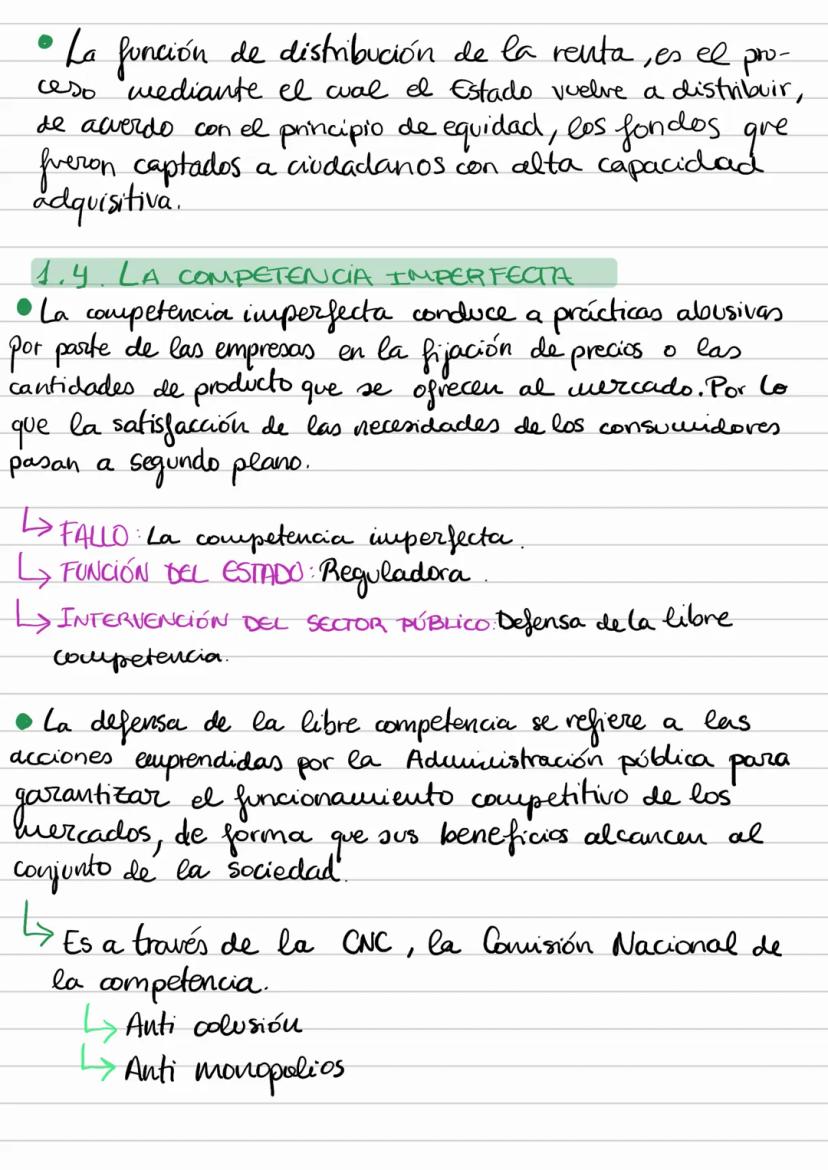 • La función de distribución de la renta, es el pro-
ceso mediante el cual el Estado vuelve a distribuir,
de acuerdo con el principio de equidad, los fondos que
fueron captados a ciudadanos con alta capacidad
adquisitiva.
1.4. LA COMPETENCIA IMPERFECTA
• La competencia imperfecta conduce a prácticas abusivas
por parte de las empresas en la fijación de precios o las
cantidades de producto que se ofrecen al mercado. Por lo
que la satisfacción de las necesidades de los consumidores
pasan a segundo plano.
↳ FALLO: La competencia imperfecta.
↳ FUNCIÓN DEL ESTADO: Reguladora.
↳ INTERVENCIÓN DEL SECTOR PÚBLICO: Defensa de la libre
competencia.
• La defensa de la libre competencia se refiere a las
acciones emprendidas por la Administración pública para
garantizar el funcionamiento competitivo de los
mercados, de forma que sus beneficios alcancen al
conjunto de la sociedad.
↳ Es a través de la CNC, la Comisión Nacional de
la competencia.
↳ Anti colusión
↳ Anti monopolios